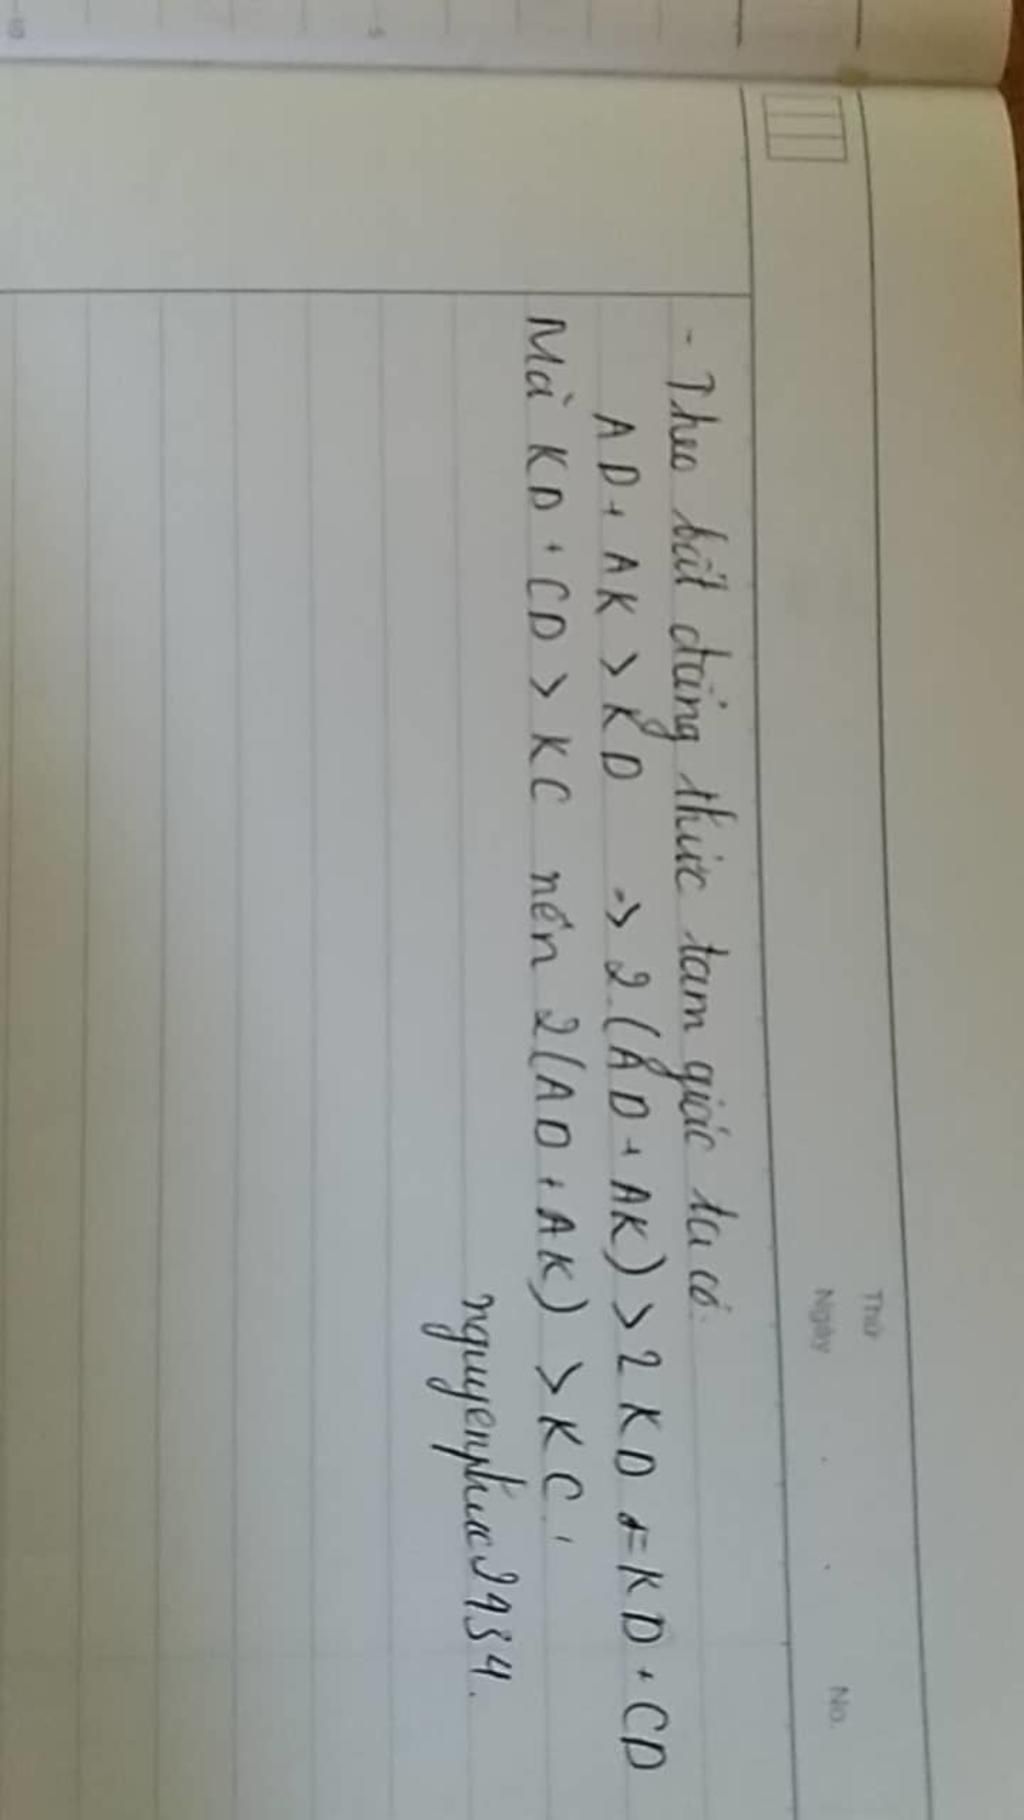 Thứ
Ngày
No.
- Theo bất đẳng thức tam giác ta có.
AD + AK > KD -> 2.(AD + AK) > 2 KD = KD + CD
Mà KD + CD > KC nên 2(AD + AK) > KC.
nguyenphuc2934.
5
10